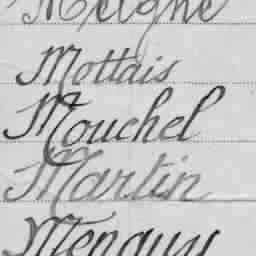 Meigné
Mottais
Mouchel
Martin
Menguy